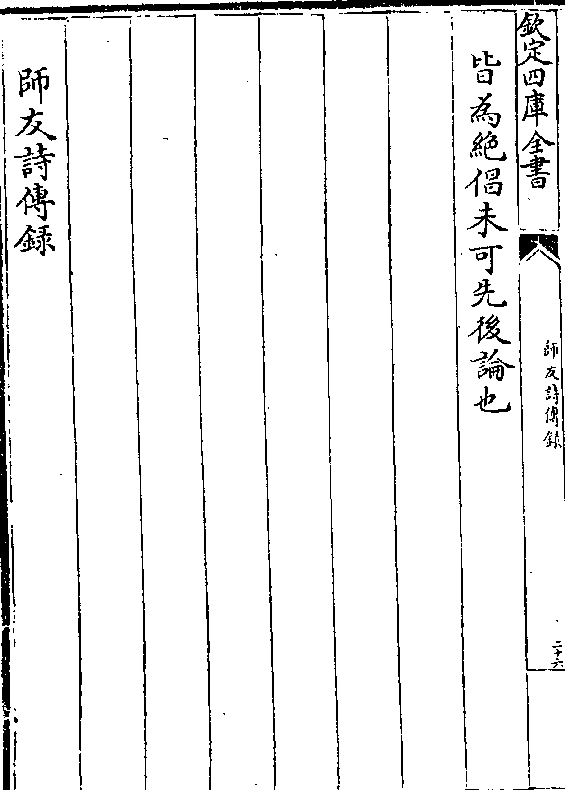 欽定四庫全書
師友詩傳録
二十六
皆為絶倡未可先後論也
師友詩傳録